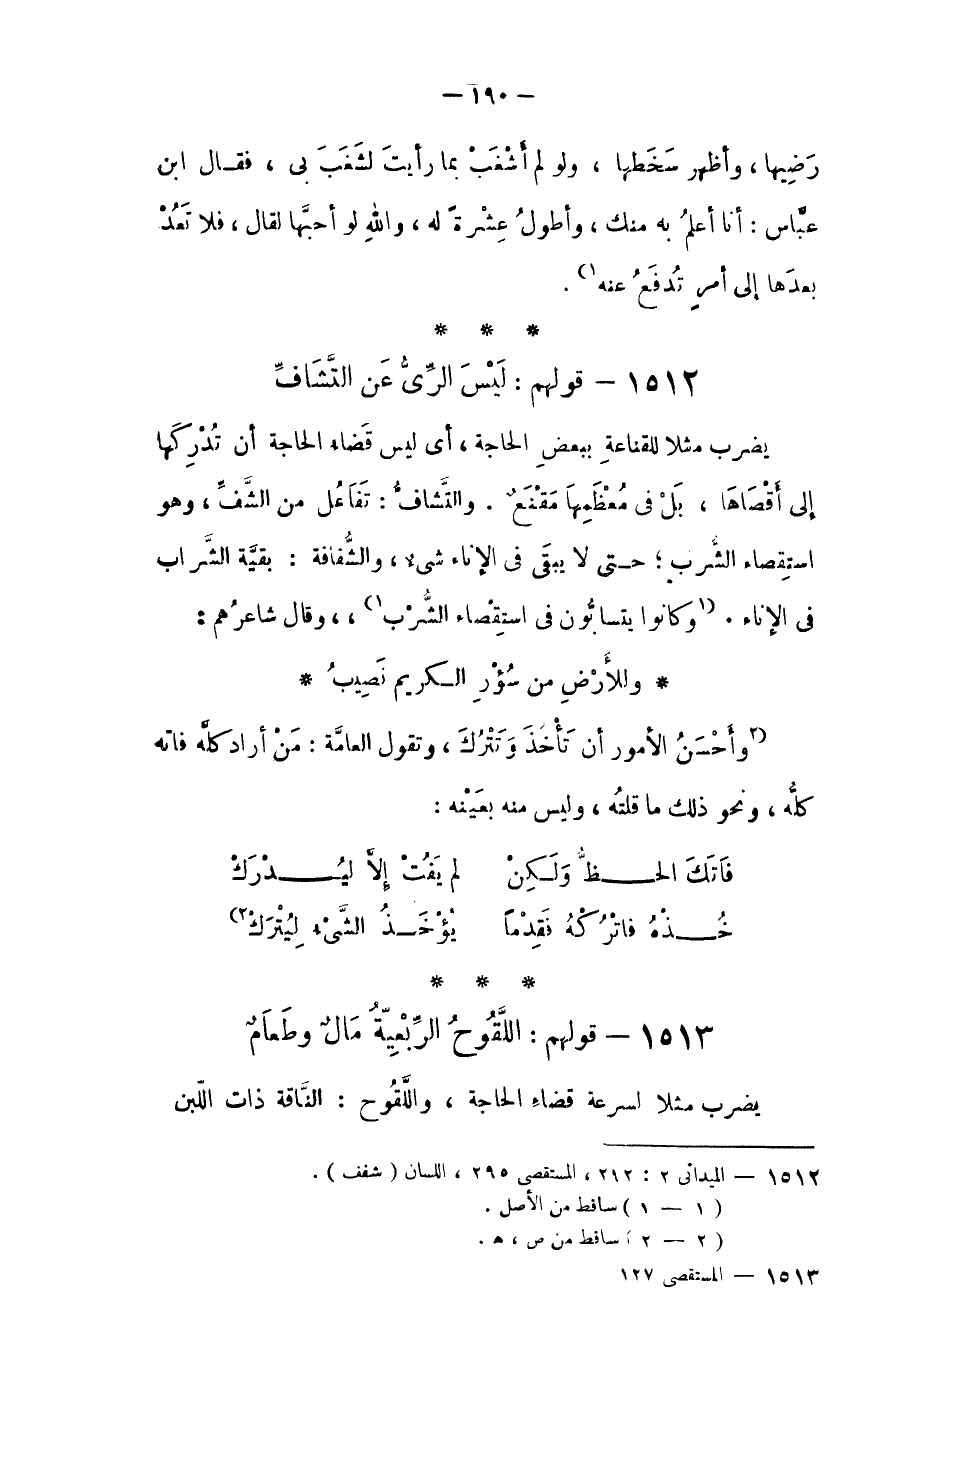 — ١٩٠ —
رَضِيها ، وأظهر سَخَطها ، ولو لم أَشْغَبْ بما رأيتَ لشَغَبَ بى ، فقـال ابن
عبَّاس : أنا أعلمُ به منك ، وأطولُ عِشْرةً له ، واللهِ لو أحبَّها لقال ، فلا تَعُدْ
بعدَها إلى أمرٍ تُدفَعُ عنه ١) .
* * *
١٥١٢ — قولهم : لَيْسَ الرِّىُّ عَن التَّشَافِّ
يضرب مثلا للقناعةِ ببعضِ الحاجة ، أى ليس قَضاء الحاجة أن تُدْرِكَها
إلى أَقْصَاهَا ، بَلْ فى مُعْظَمِهَا مَقْنَعٌ . والتَّشافُّ : تَفَاعُل من الشَّفِّ ، وهو
استِقصاء الشُّربِ ؛ حـتى لا يبقَى فى الإناء شىء ، والشُّفافة : بقيَّة الشَّراب
فى الإناء . (١ وكانوا يتسابُّون فى استِقْصاء الشُّرْب ١) ، ، وقال شاعرُهم :
* وللأَرْضِ من سُؤْرِ الـكريم نَصِيبُ *
(٢ وأَحْسَنُ الأمور أن تَأْخُذَ وَتَتْرُكَ ، وتقول العامَّة : مَنْ أراد كلَّه فاته
كلُّه ، ونحو ذلك ما قلتُه ، وليس منه بعَيْنه :
فَاتَكَ الحـــظُّ وَلَـكِنْ لم يَفُتْ إلاَّ ليُـــدْرَكْ
خُـــذْهُ فاتْرُكْهُ نَقِدْمًا يُؤْخَـذُ الشَّىْء لِيُتْرَكْ ٢)
* * *
١٥١٣ — قولهم : اللَّقُوحُ الرِّبْعِيَّةُ مَالٌ وطَعَامٌ
يضرب مثلا لسرعة قضاء الحاجة ، واللَّقُوح : النَّاقة ذات اللّبن
١٥١٢ — الميدانى ٢ : ٢١٢ ، المستقصى ٢٩٥ ، اللسان ( شفف ) .
( ١ — ١ ) ساقط من الأصل .
( ٢ — ٢ ) ساقط من ص ، ه .
١٥١٣ — المستقصى ١٢٧